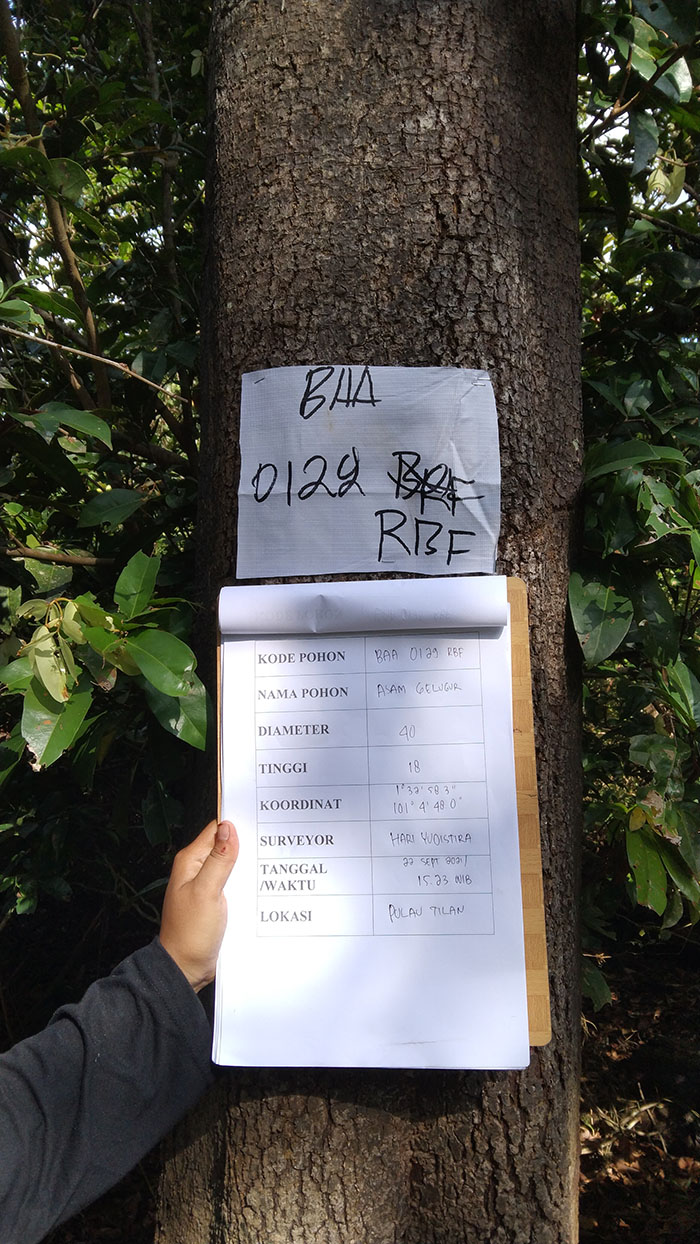 BAA
0129
RBF
KODE POHON BAA 0129 RBF
NAMA POHON ASAM GELUGUR
DIAMETER 40
TINGGI 18
KOORDINAT 1° 32' 58.3"
101° 4' 48.0"
SURVEYOR HARI YUDISTIRA
TANGGAL 22 SEPT 2021/
/WAKTU 15.23 WIB
LOKASI PULAU TILAN